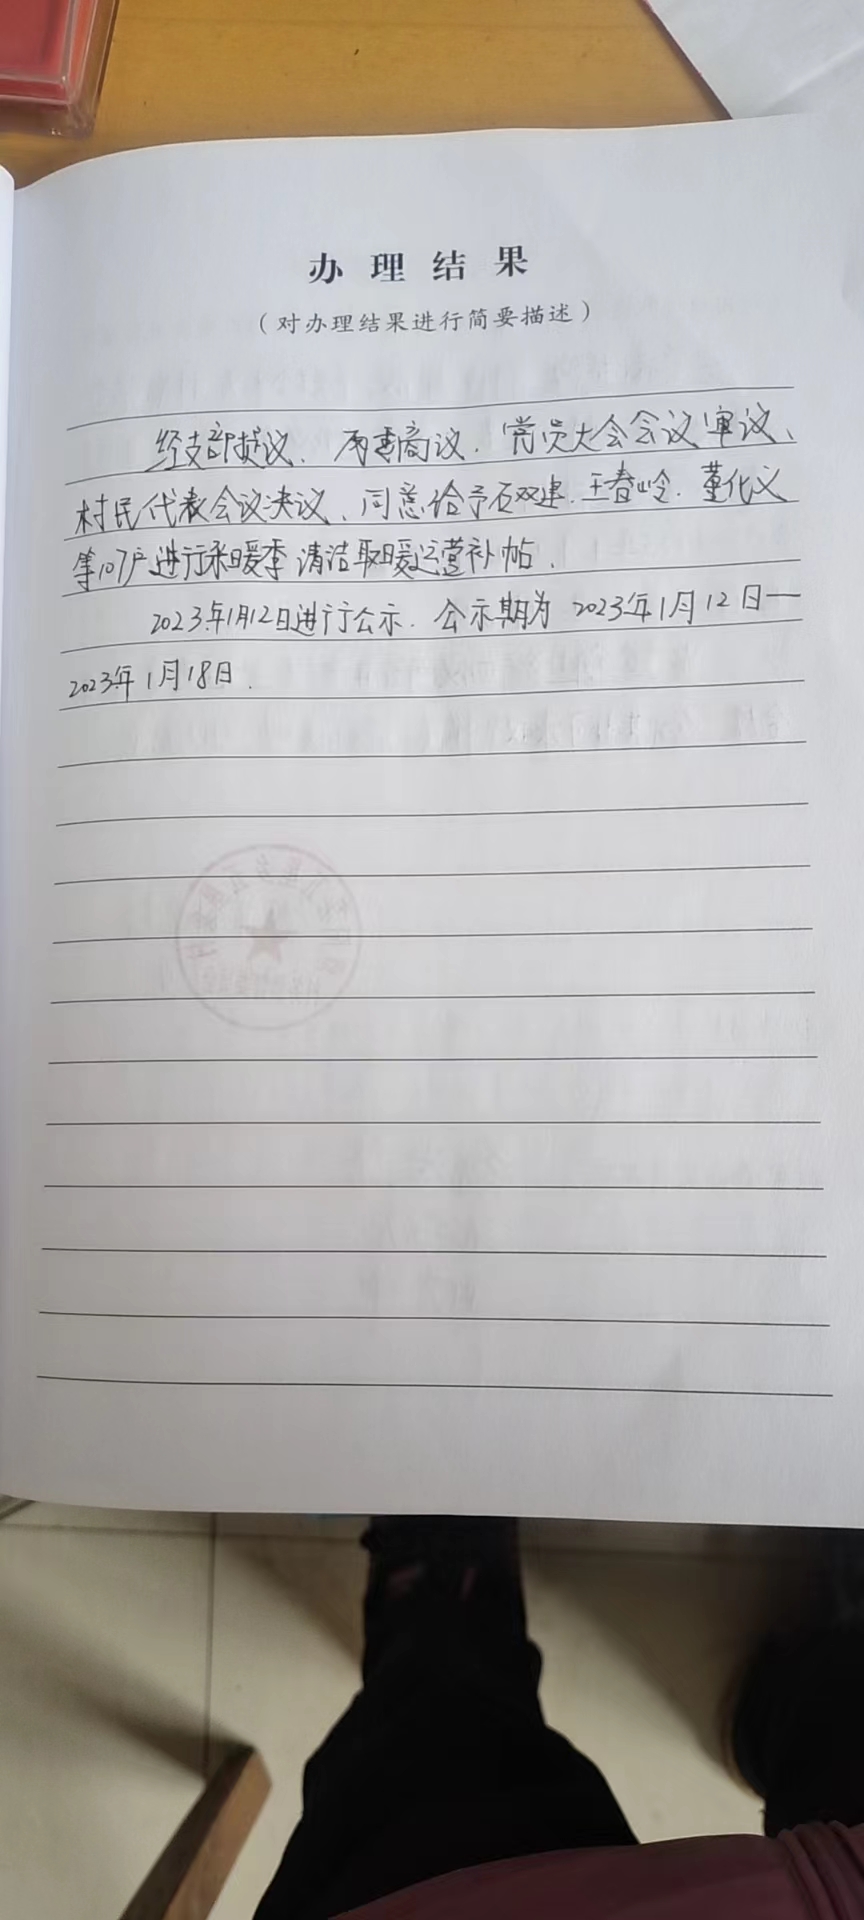 办理结果
（对办理结果进行简要描述）
经支部提议、两委商议、党员大会会议审议、
村民代表会议决议、同意给予石双建、王春岭、董化义
等107户进行采暖季清洁取暖运营补帖.
2023年1月12日进行公示. 公示期为2023年1月12日—
2023年1月18日.